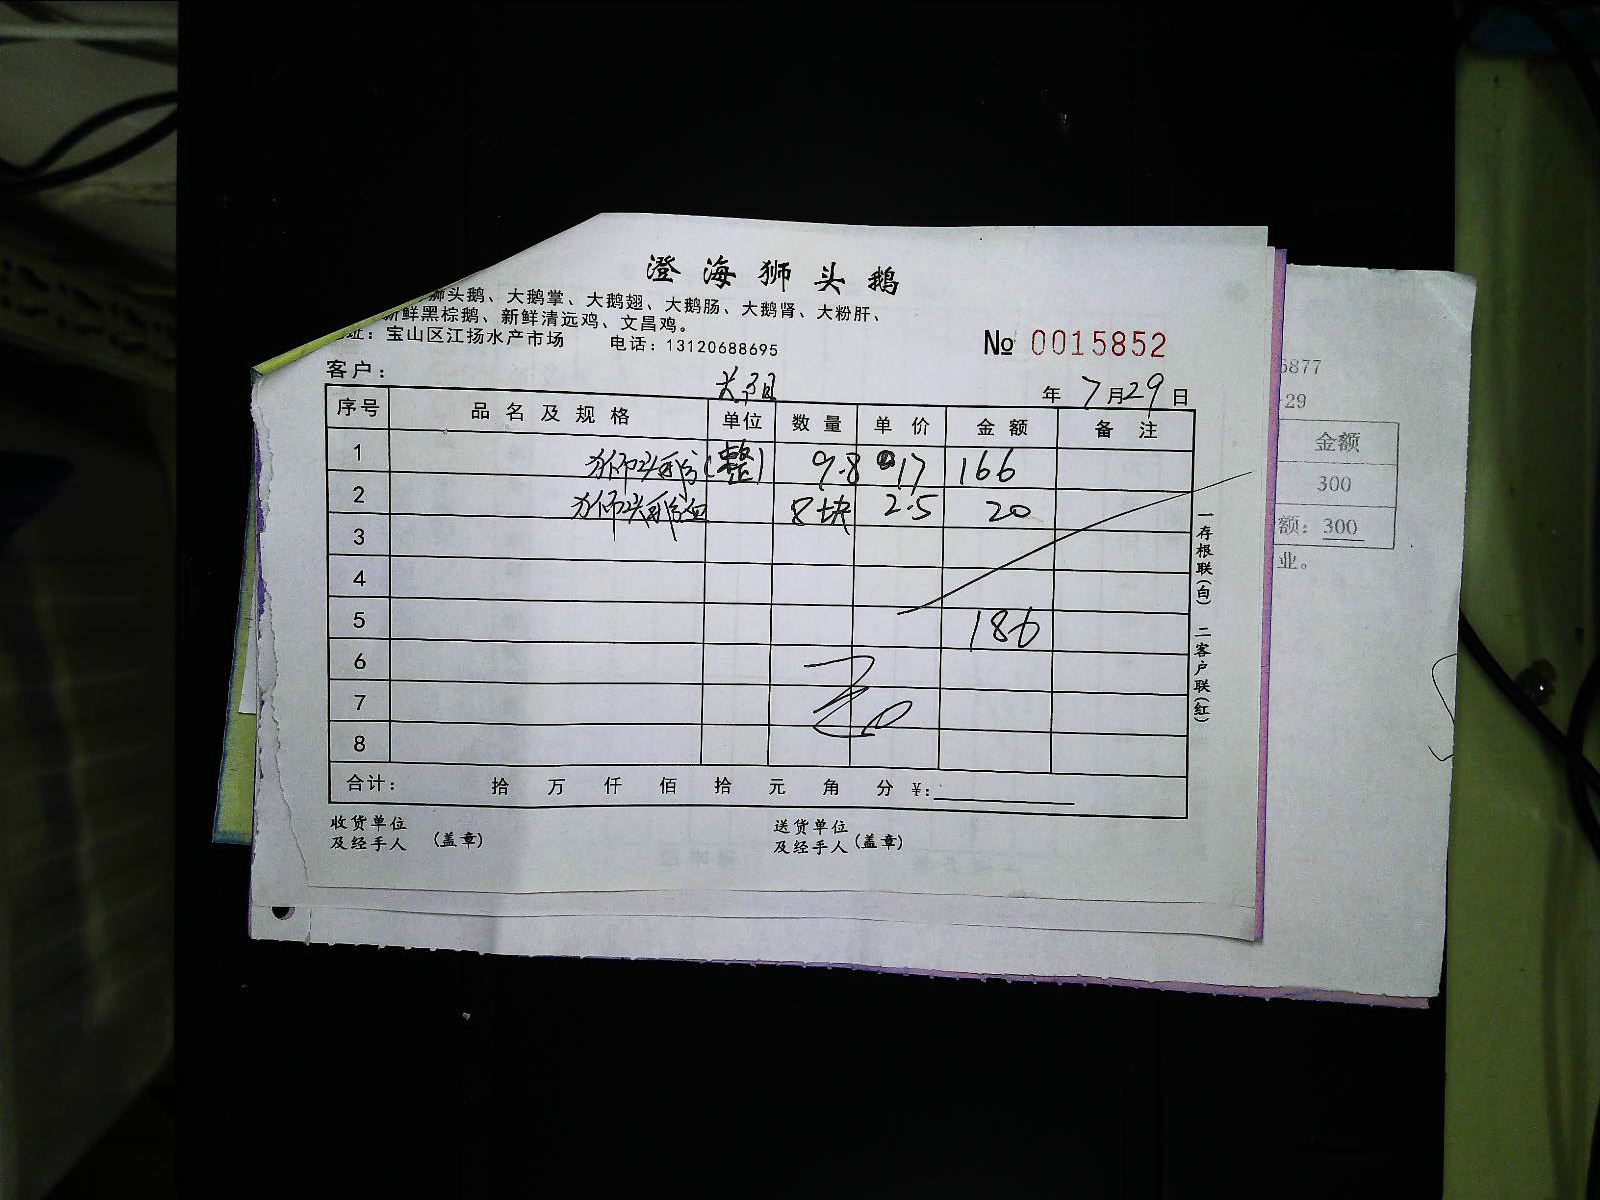 澄海狮头鹅
狮头鹅、大鹅掌、大鹅翅、大鹅肠、大鹅肾、大粉肝、
新鲜黑棕鹅、新鲜清远鸡、文昌鸡。
址：宝山区江扬水产市场 电话：13120688695
№ 0015852
客户：
年 7 月 29 日
序号 品名及规格 单位 数量 单价 金额 备注
1 狮头鹅(整) 9.8 17 166
2 狮头鹅血 8块 2.5 20
3
4
5 186
6
7
8
合计： 拾 万 仟 佰 拾 元 角 分 ¥:
收货单位 送货单位
及经手人 (盖章) 及经手人 (盖章)
一存根联(白) 二客户联(红)
5877
29
金额
300
额：300
业。